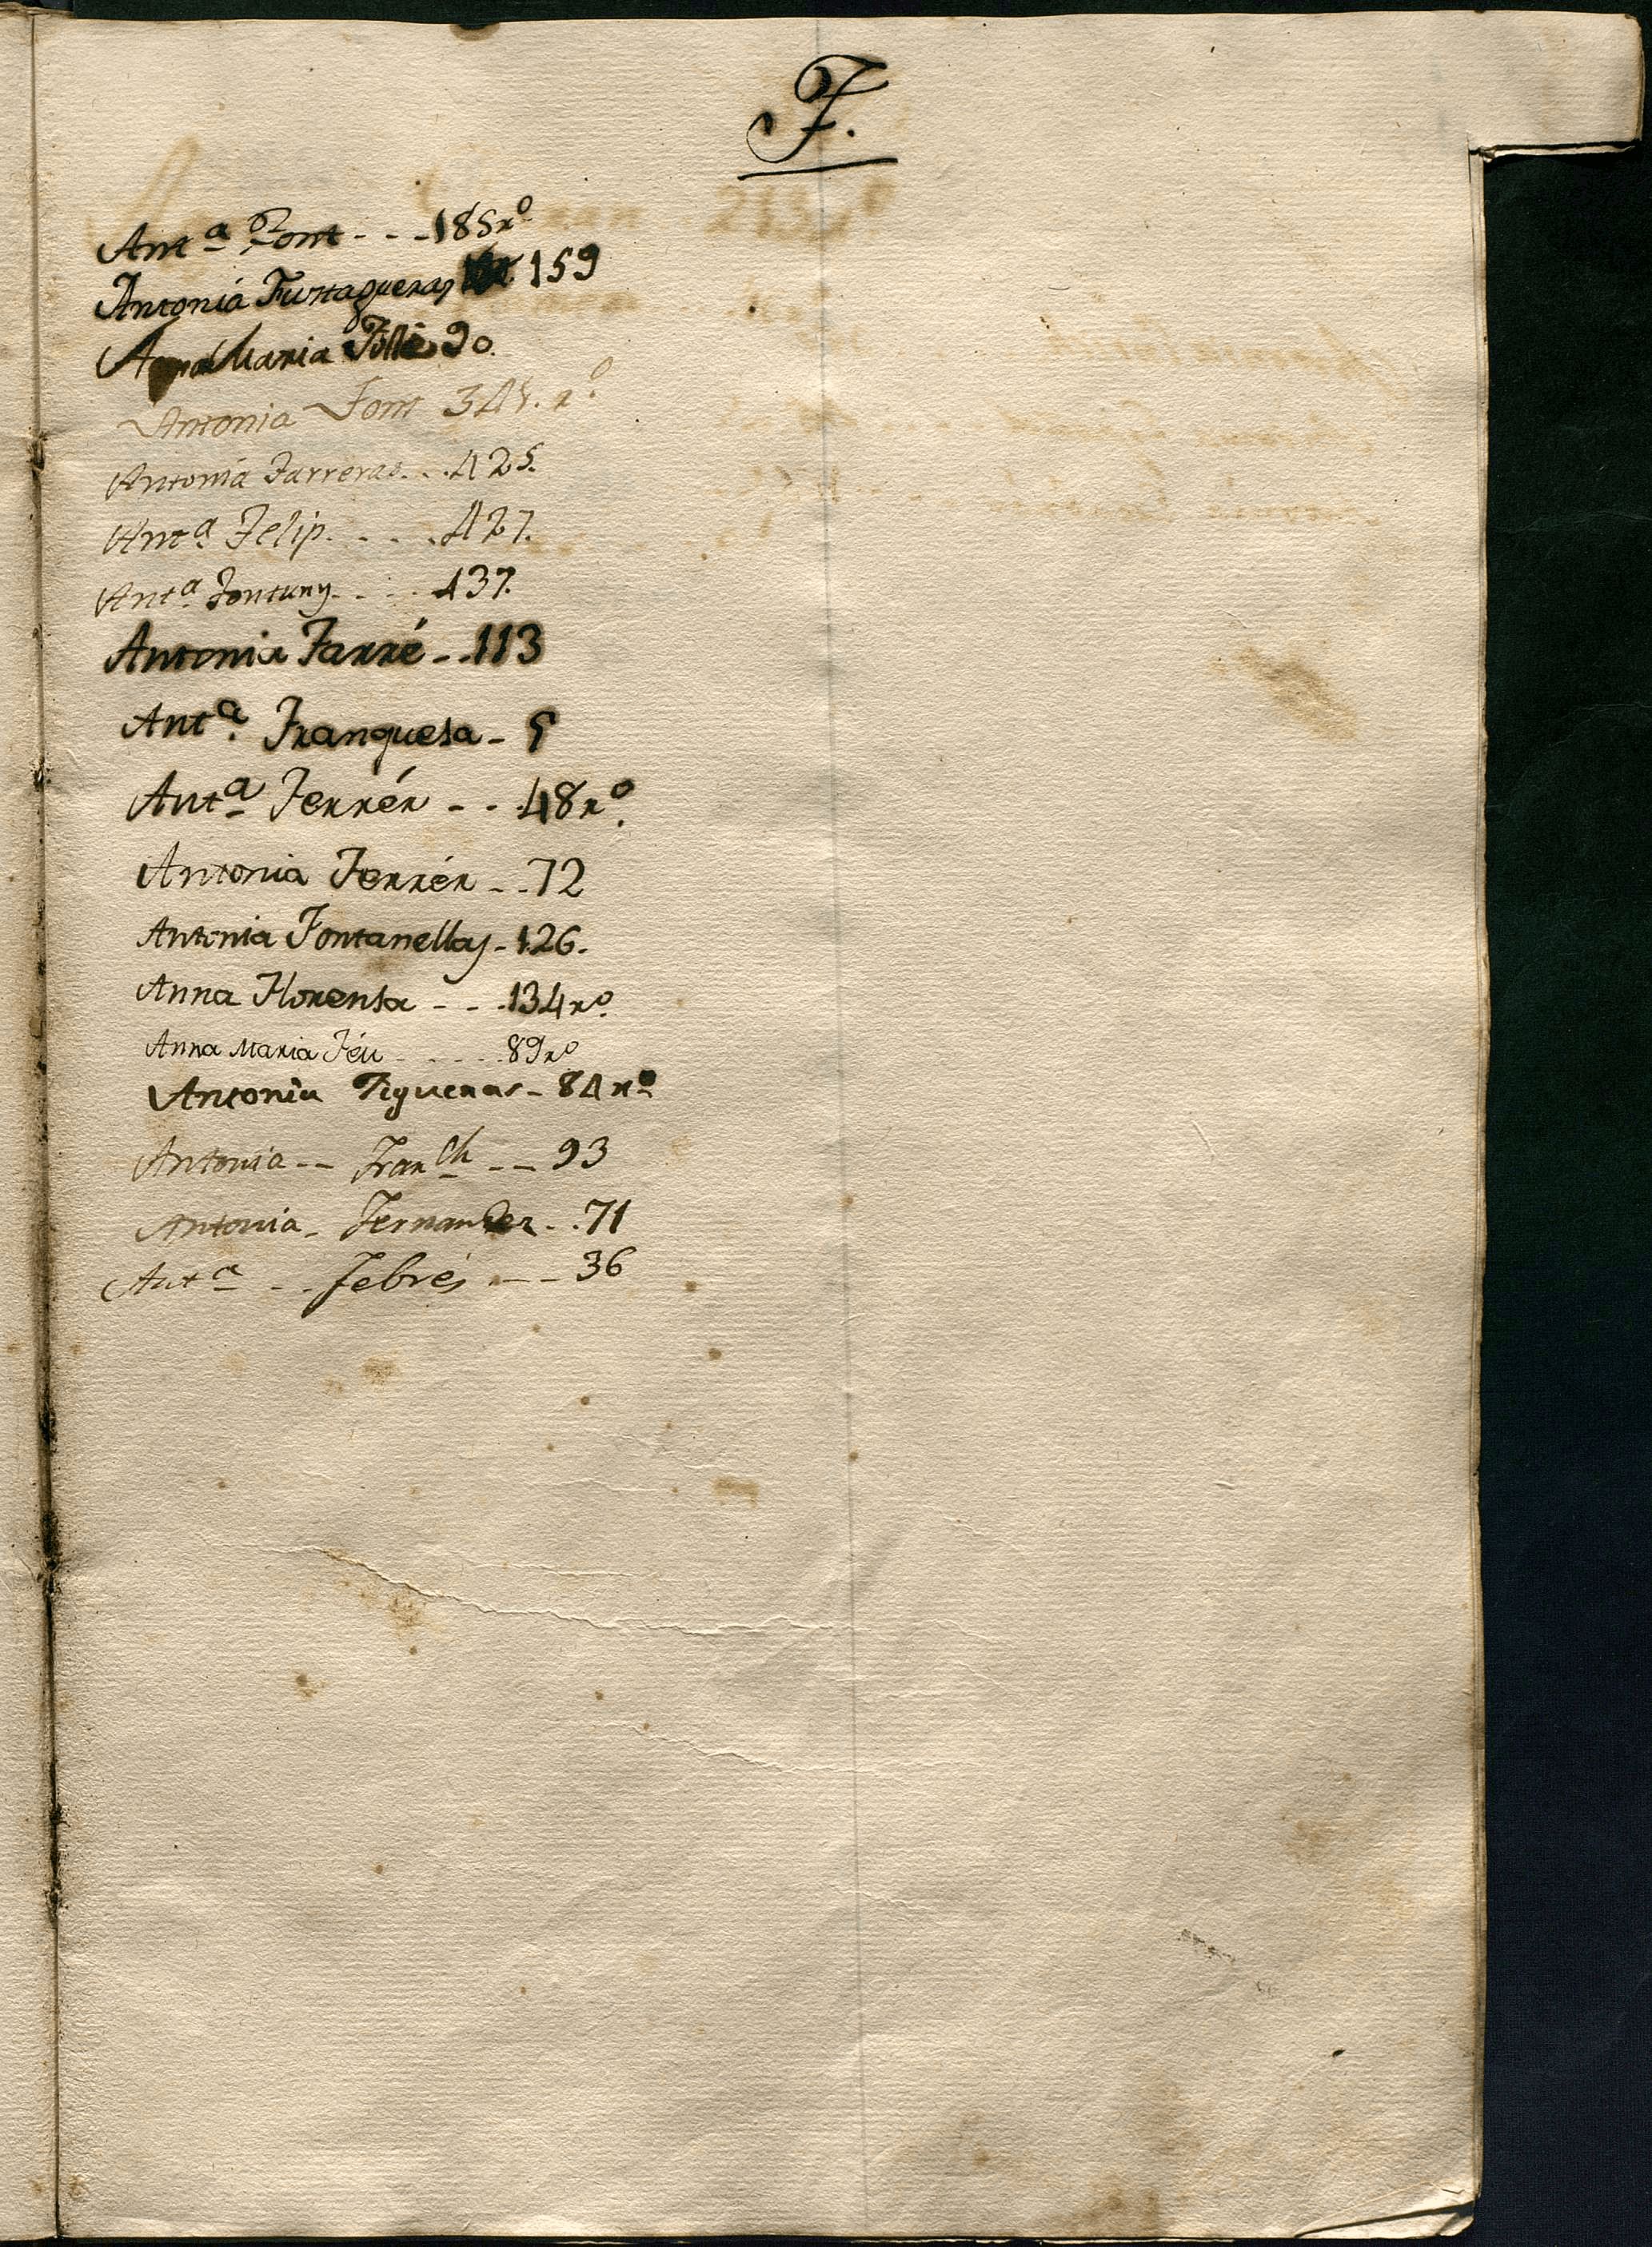 F.
Antª Font - - - 185 rº
Antonia Furtagueras 159
Anna Maria Follé 90.
Antonia Font 345. rº
Antonia Farreras. . . 425.
Antª Felip. . . . . 427.
Antª Fontuny. . . . 437.
Antonia Farré - - 113
Antª. Franquesa - 5
Antª Ferrér - - 48 rº.
Antonia Ferrér - - 72
Antonia Fontanellas - 126.
Anna Florensa - - - 134 rº.
Anna Maria Féu - - - - 89 rº
Antonia Figueras - 84 rº
Antonia - - Franch - - 93
Antonia - Fernandez - . 71
Antª - . Febrés - - - 36